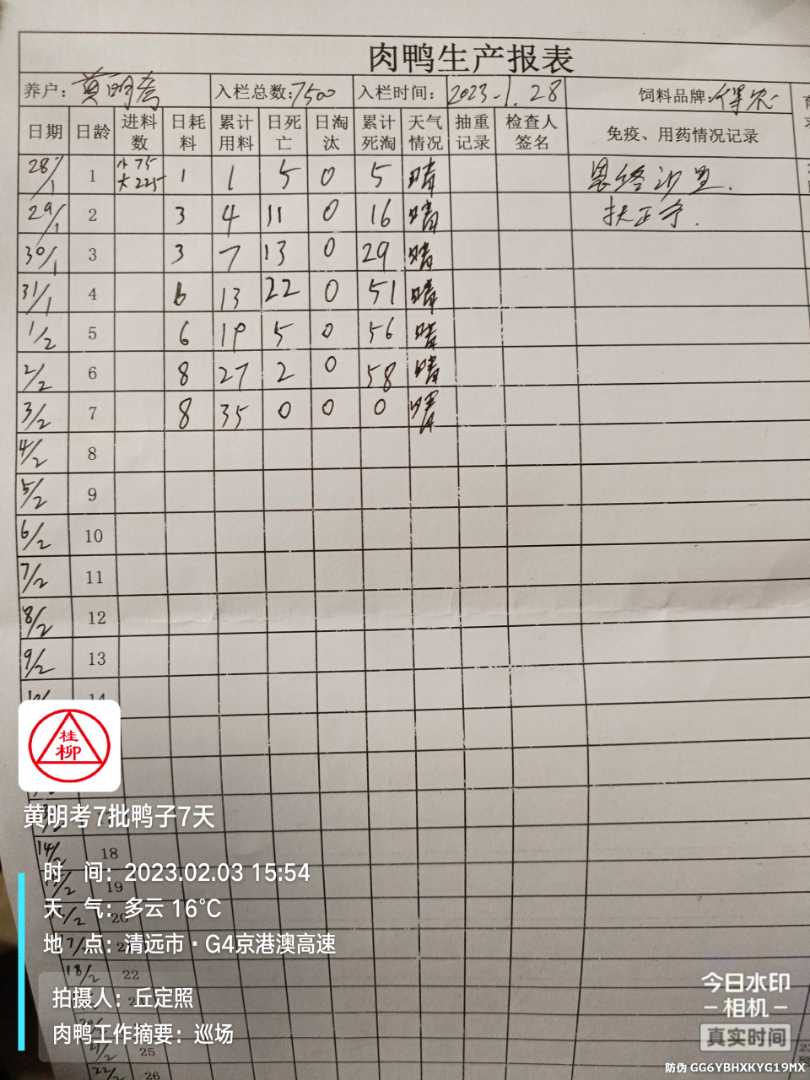 肉鸭生产报表
养户: 黄明考 入栏总数: 7500 入栏时间: 2023.1.28 饲料品牌:
日期 日龄 进料数 日耗料 累计用料 日死亡 日淘汰 累计死淘 天气情况 抽重记录 检查人签名 免疫、用药情况记录
28/1 1 小75 大225 1 1 5 0 5 晴
29/1 2 3 4 11 0 16 晴
30/1 3 3 7 13 0 29 晴
31/1 4 6 13 22 0 51 晴
1/2 5 6 19 5 0 56 晴
2/2 6 8 27 2 0 58 晴
3/2 7 8 35 0 0 0
4/2 8
5/2 9
6/2 10
7/2 11
8/2 12
9/2 13
14
桂柳
黄明考7批鸭子7天
14/2 18
19
20
18/2 22
25
22/2 26
时 间: 2023.02.03 15:54
天 气: 多云 16℃
地 点: 清远市·G4京港澳高速
拍摄人: 丘定照
肉鸭工作摘要: 巡场
今日水印
相机
真实时间
防伪 GG6YBHXKYG19MX